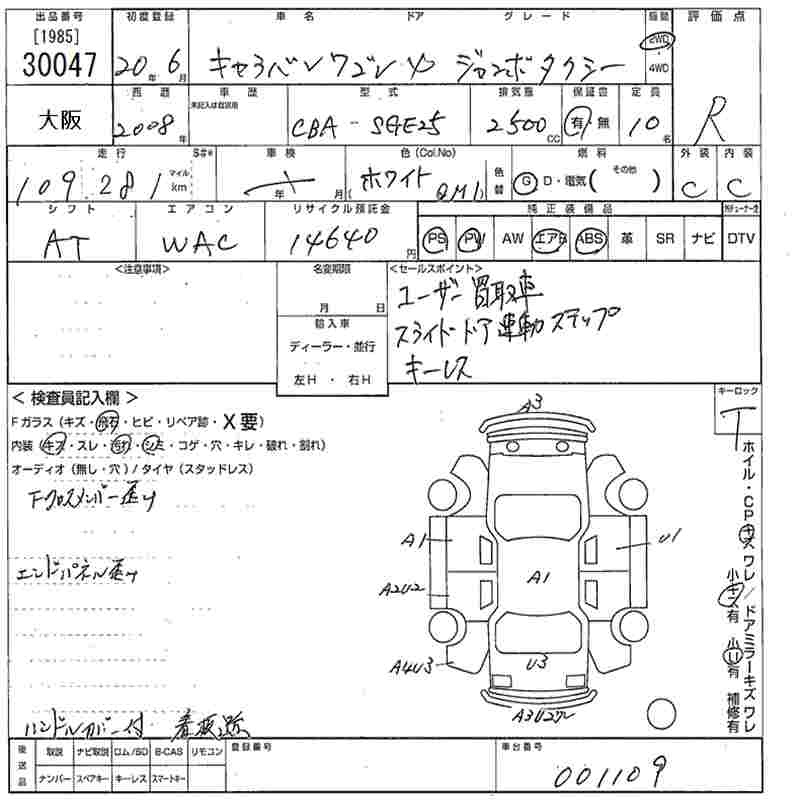 出品番号 初度登録 車名 ドア グレード 駆動 評価点
[1985]
30047 20年 6月 キャラバンワゴン 4 ジャンボタクシー 2WD・4WD R
大阪 西暦 車歴 型式 排気量 保証書 定員
2008年 未記入は自家用 CBA-SGE25 2500cc 有・無 10名
走行 S#※ 車検 色(Col.No) 燃料 外装 内装
109.281 マイル km 年 月 ホワイト QM1 色替 G D・電気( その他 ) C C
シフト エアコン リサイクル預託金 純正装備品
AT WAC 14640円 PS PW AW エアB ABS 革 SR ナビ DTV
<注意事項> 名変期限 <セールスポイント>
月 日 ユーザー買取車
輸入車 スライドドア連動ステップ
ディーラー・並行 キーレス
左H・右H
<検査員記入欄> キーロック
Fガラス(キズ・飛石・ヒビ・リペア跡・X要) T
内装(キズ・スレ・汚れ・シミ・コゲ・穴・キレ・破れ・割れ)
オーディオ(無し・穴)/タイヤ(スタッドレス)
Fクロスメンバー歪み
エンドパネル歪み
ハンドルカバー付 看板跡
A3
A1 U1
A1
A2U2
A4U3 U3
ホイル・CPキズ ワレ/ドアミラーキズ ワレ
小キズ有 小U有 補修有
後送品 取説 ナビ取説 ロム/SD B-CAS リモコン 登録番号 車台番号
ナンバー スペアキー キーレス スマートキー 001109